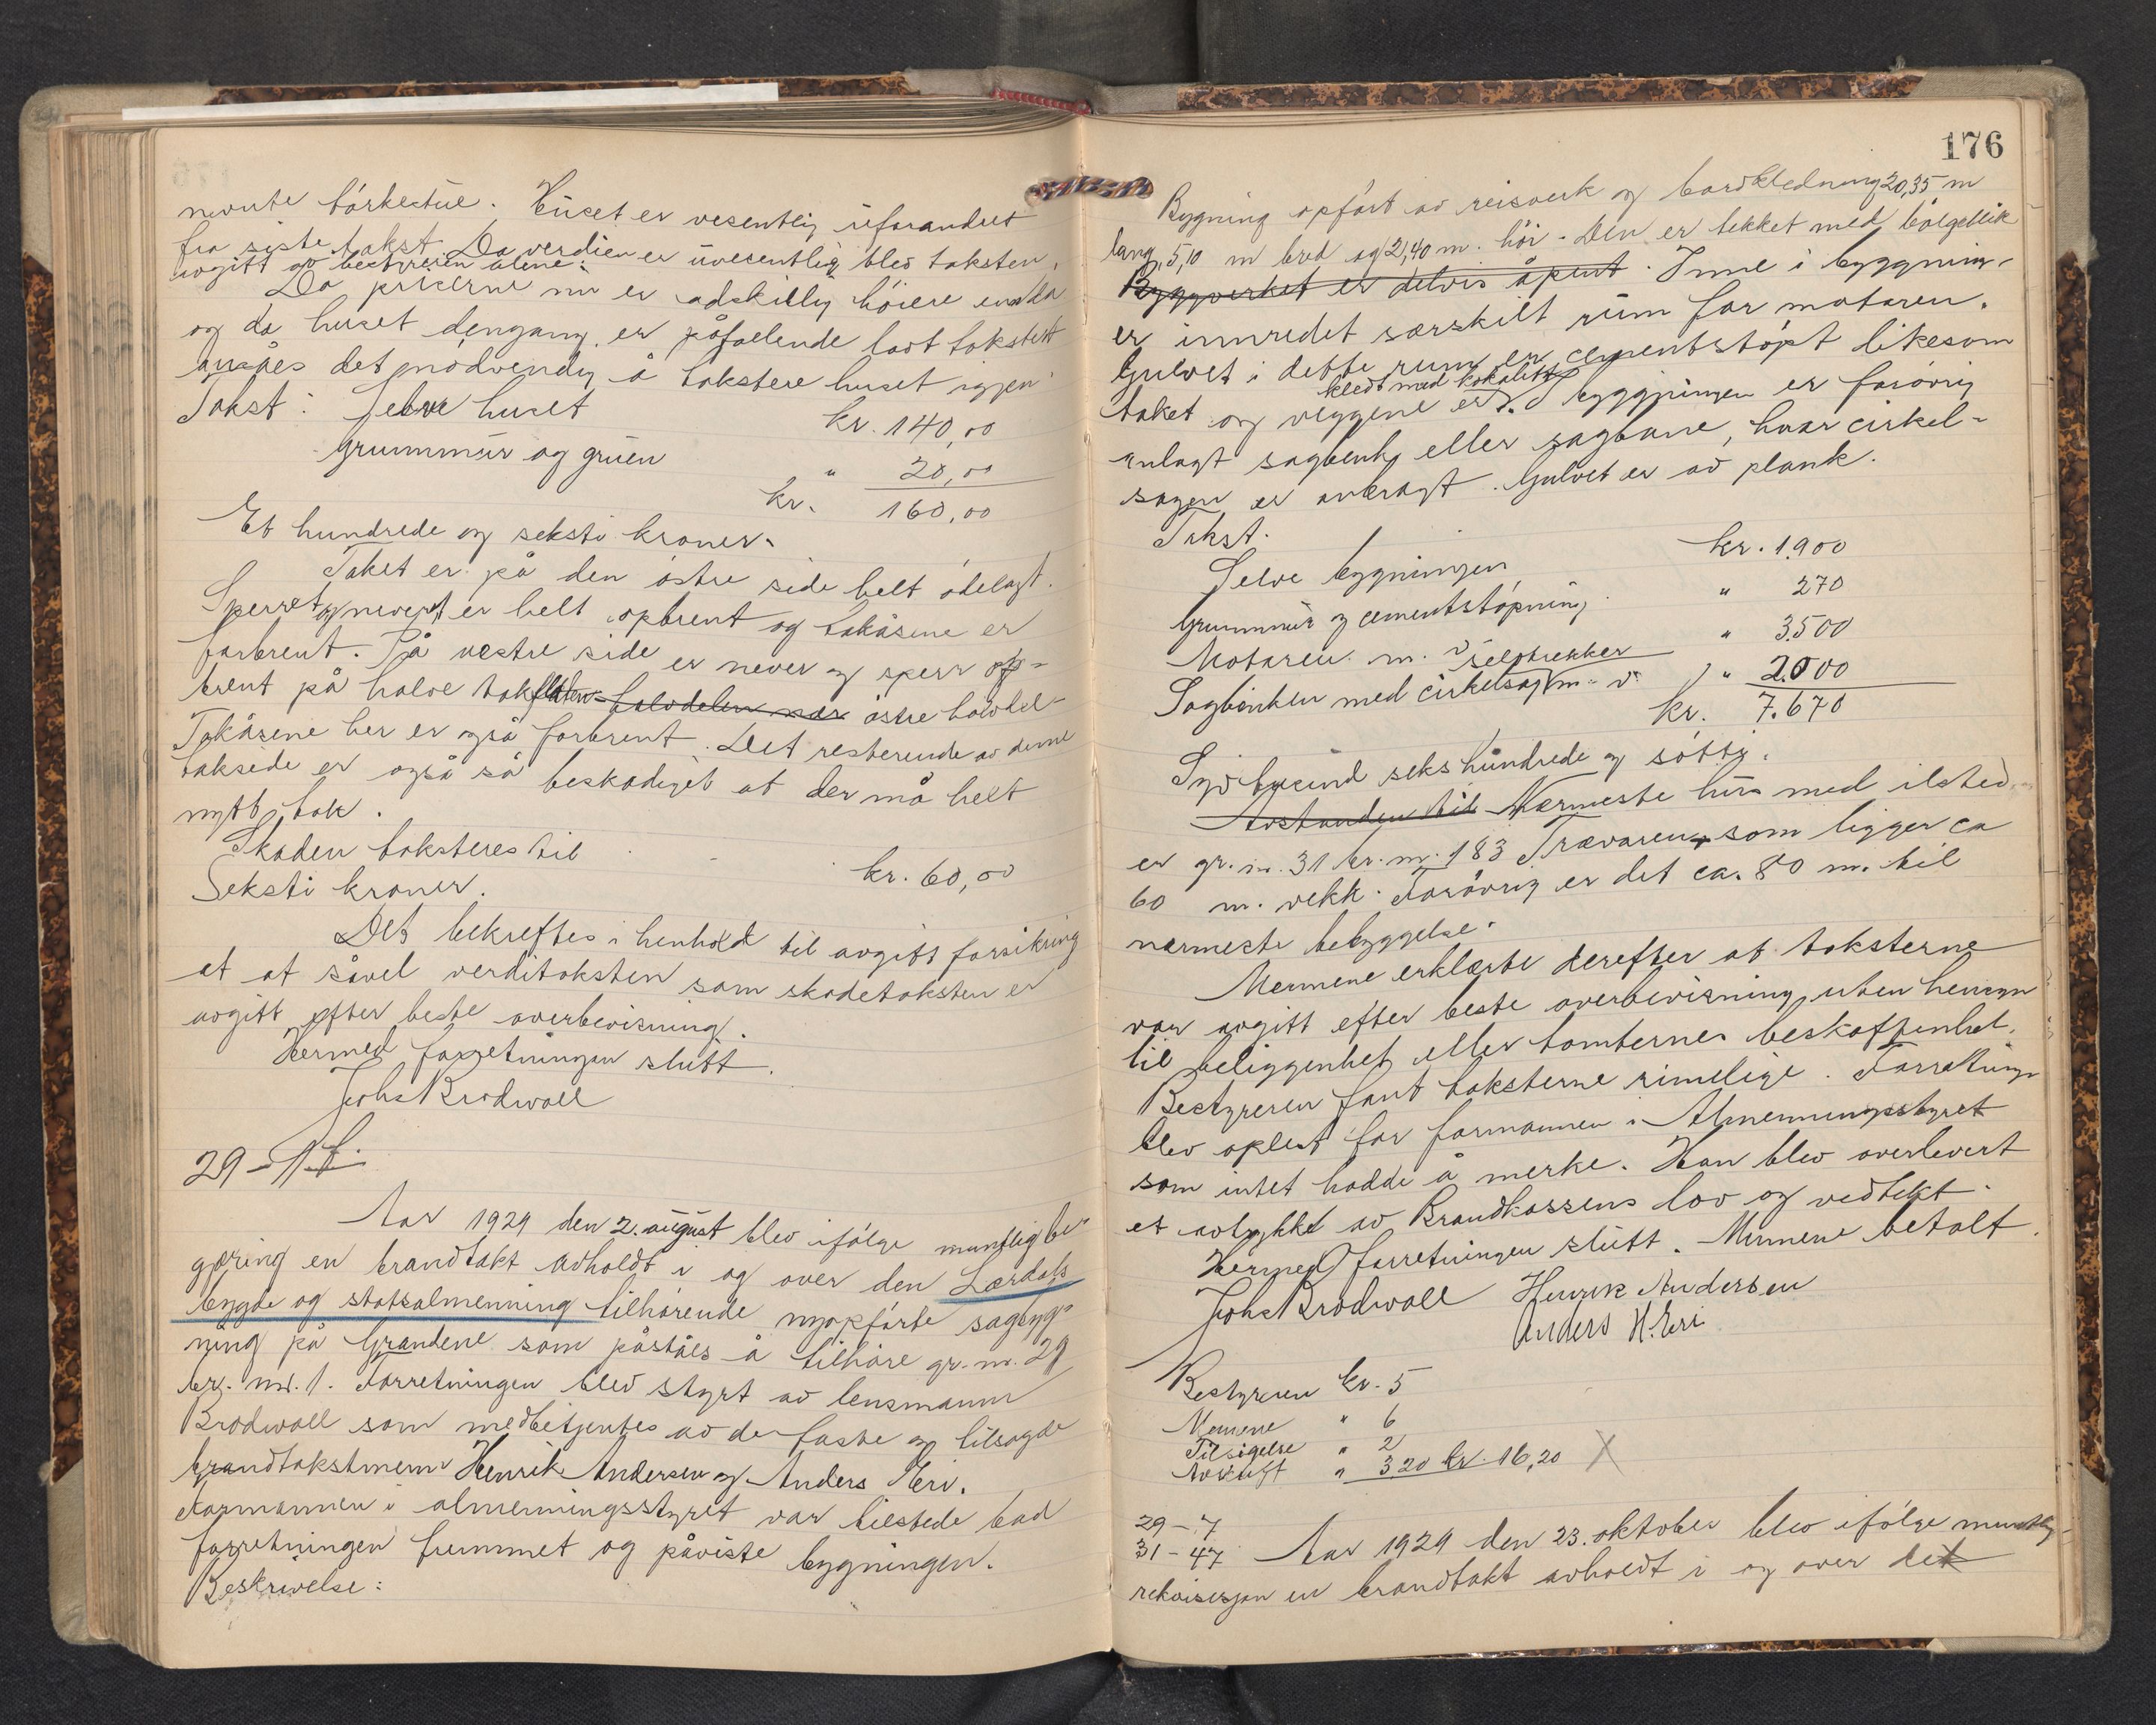 nevnte tørkestue. Huset er vesentlig uforandret
fra siste takst. Da verdien er uvesentlig blev taksten
avgitt av bestyreren alene.
Da priserne nu er adskillig høiere enn da
og da huset dengang er påfallende lavt takstert
ansåes det nødvendig å takstere huset igjen
Takst: Selve huset kr. 140,00
Grunnmur og gruen " 20,00
kr. 160,00
Et hundrede og seksti kroner.
Taket er på den østre side helt ødelagt.
Sperret og neveret er helt opbrent og takåsene er
forbrent. På vestre side er never og sperr op-
brent på halve takflaten halvdelen nær østre halvdel
Takåsene her er også forbrent. Det resterende av denne
takside er også så beskadiget at der må helt
nytt tak.
Skaden taksteres til kr. 60,00
Seksti kroner.
Det bekreftes i henhold til avgitt forsikring
at såvel verditaksten som skadetaksten er
avgitt efter beste overbevisning.
Hermed forretningen slutt.
Johs Brodwall
29-1 f.
Aar 1929 den 2. august blev ifølge muntlig be-
gjæring en brandtakt avholdt i og over den Lærdals
bygde og statsalmenning tilhørende nyopførte sagbyg-
ning på Grandene som påståes å tilhøre gr. nr. 29
br. nr. 1. Forretningen blev styrt av lensmann
Brodwall som medbetjentes av de faste og tilsagde
brandtakstmenn Henrik Andersen og Anders Eri.
Formannen i almenningsstyret var tilstede bad
forretningen fremmet og påviste bygningen.
Beskrivelse:
176
Bygning opført av reisverk og bordkledning 20,35 m
lang, 5,10 m bred og 2,40 m. høi. Den er tekket med bølgeblik
Byggverket er delvis åpent. Inne i byggning-
er innredet særskilt rum for motoren.
Gulvet i dette rum er cementstøpt likesom
kledt med
taket og veggene er. I byggningen er forøvrig
anlagt sagbenk eller sagbane, hvor cirkel-
sagen er anbragt. Gulvet er av plank.
Takst.
Selve bygningen kr. 1.900
Grunnmur og cementstøpning " 270
Motoren m. v " 3.500
selvtrekker
Sagbenken med cirkelsag m. v. ) " 2.000
kr. 7.670
Syv tusind seks hundrede og søtti.
Avstanden til Nærmeste hus med ildsted
er gr. nr. 31 br. nr. 183 Trævaren som ligger ca
60 m. vekk. Forøvrig er det ca. 80 m. til
nærmeste bebyggelse.
Mennene erklærte derefter at taksterne
var avgitt efter beste overbevisning uten hensyn
til beliggenhet eller tomternes beskaffenhet.
Bestyreren fant taksterne rimelige. Forretningen
blev oplest for formannen i Almenningsstyret
som intet hadde å merke. Han blev overlevert
et avtrykk av Brandkassens lov og vedtekt.
Hermed forretningen slutt. Mennene betalt.
Johs Brodwall Henrik Andersen
Anders H. Eri
Bestyreren kr. 5
Mennene " 6
Tilsigelse " 2
Avskrift " 3,20 kr. 16,20 X
29-7
31-47 Aar 1929 den 23. oktober blev ifølge muntlig
rekvisisjon en brandtakt avholdt i og over det